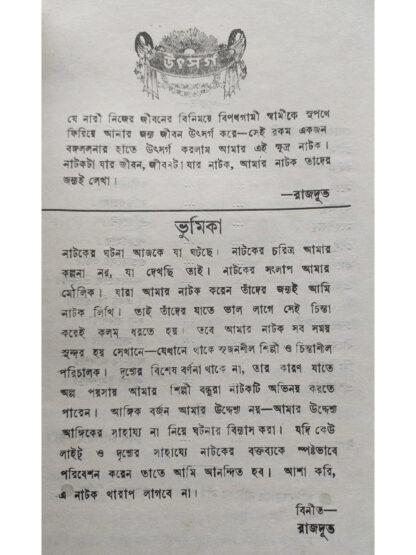 উৎসর্গ
যে নারী নিজের জীবনের বিনিময়ে বিপথগামী স্বামীকে সুপথে
ফিরিয়ে আনার জন্য জীবন উৎসর্গ করে—সেই রকম একজন
বঙ্গললনার হাতে উৎসর্গ করলাম আমার এই ক্ষুদ্র নাটক।
নাটকটা যার জীবন, জীবনটা যার নাটক, আমার নাটক তাদের
জন্যই লেখা।
—রাজদূত
ভূমিকা
নাটকের ঘটনা আজকে যা ঘটছে। নাটকের চরিত্র আমার
কল্পনা নয়, যা দেখছি তাই। নাটকের সংলাপ আমার
মৌলিক। যারা আমার নাটক করেন তাঁদের জন্যই আমি
নাটক লিখি। তাই তাঁদের যাতে ভাল লাগে সেই চিন্তা
করেই কলম ধরতে হয়। তবে আমার নাটক সব সময়
সুন্দর হয় সেখানে—যেখানে থাকে সৃজনশীল শিল্পী ও চিন্তাশীল
পরিচালক। দৃশ্যের বিশেষ বর্ণনা থাকে না, তার কারণ যাতে
অল্প পয়সায় আমার শিল্পী বন্ধুরা নাটকটি অভিনয় করতে
পারেন। আঙ্গিক বর্জন আমার উদ্দেশ্য নয়—আমার উদ্দেশ্য
আঙ্গিকের সাহায্য না নিয়ে ঘটনার বিন্যাস করা। যদি কেউ
লাইট্ ও দৃশ্যের সাহায্যে নাটকের বক্তব্যকে স্পষ্টভাবে
পরিবেশন করেন তাতে আমি আনন্দিত হব। আশা করি,
এ নাটক খারাপ লাগবে না।
বিনীত—
রাজদূত